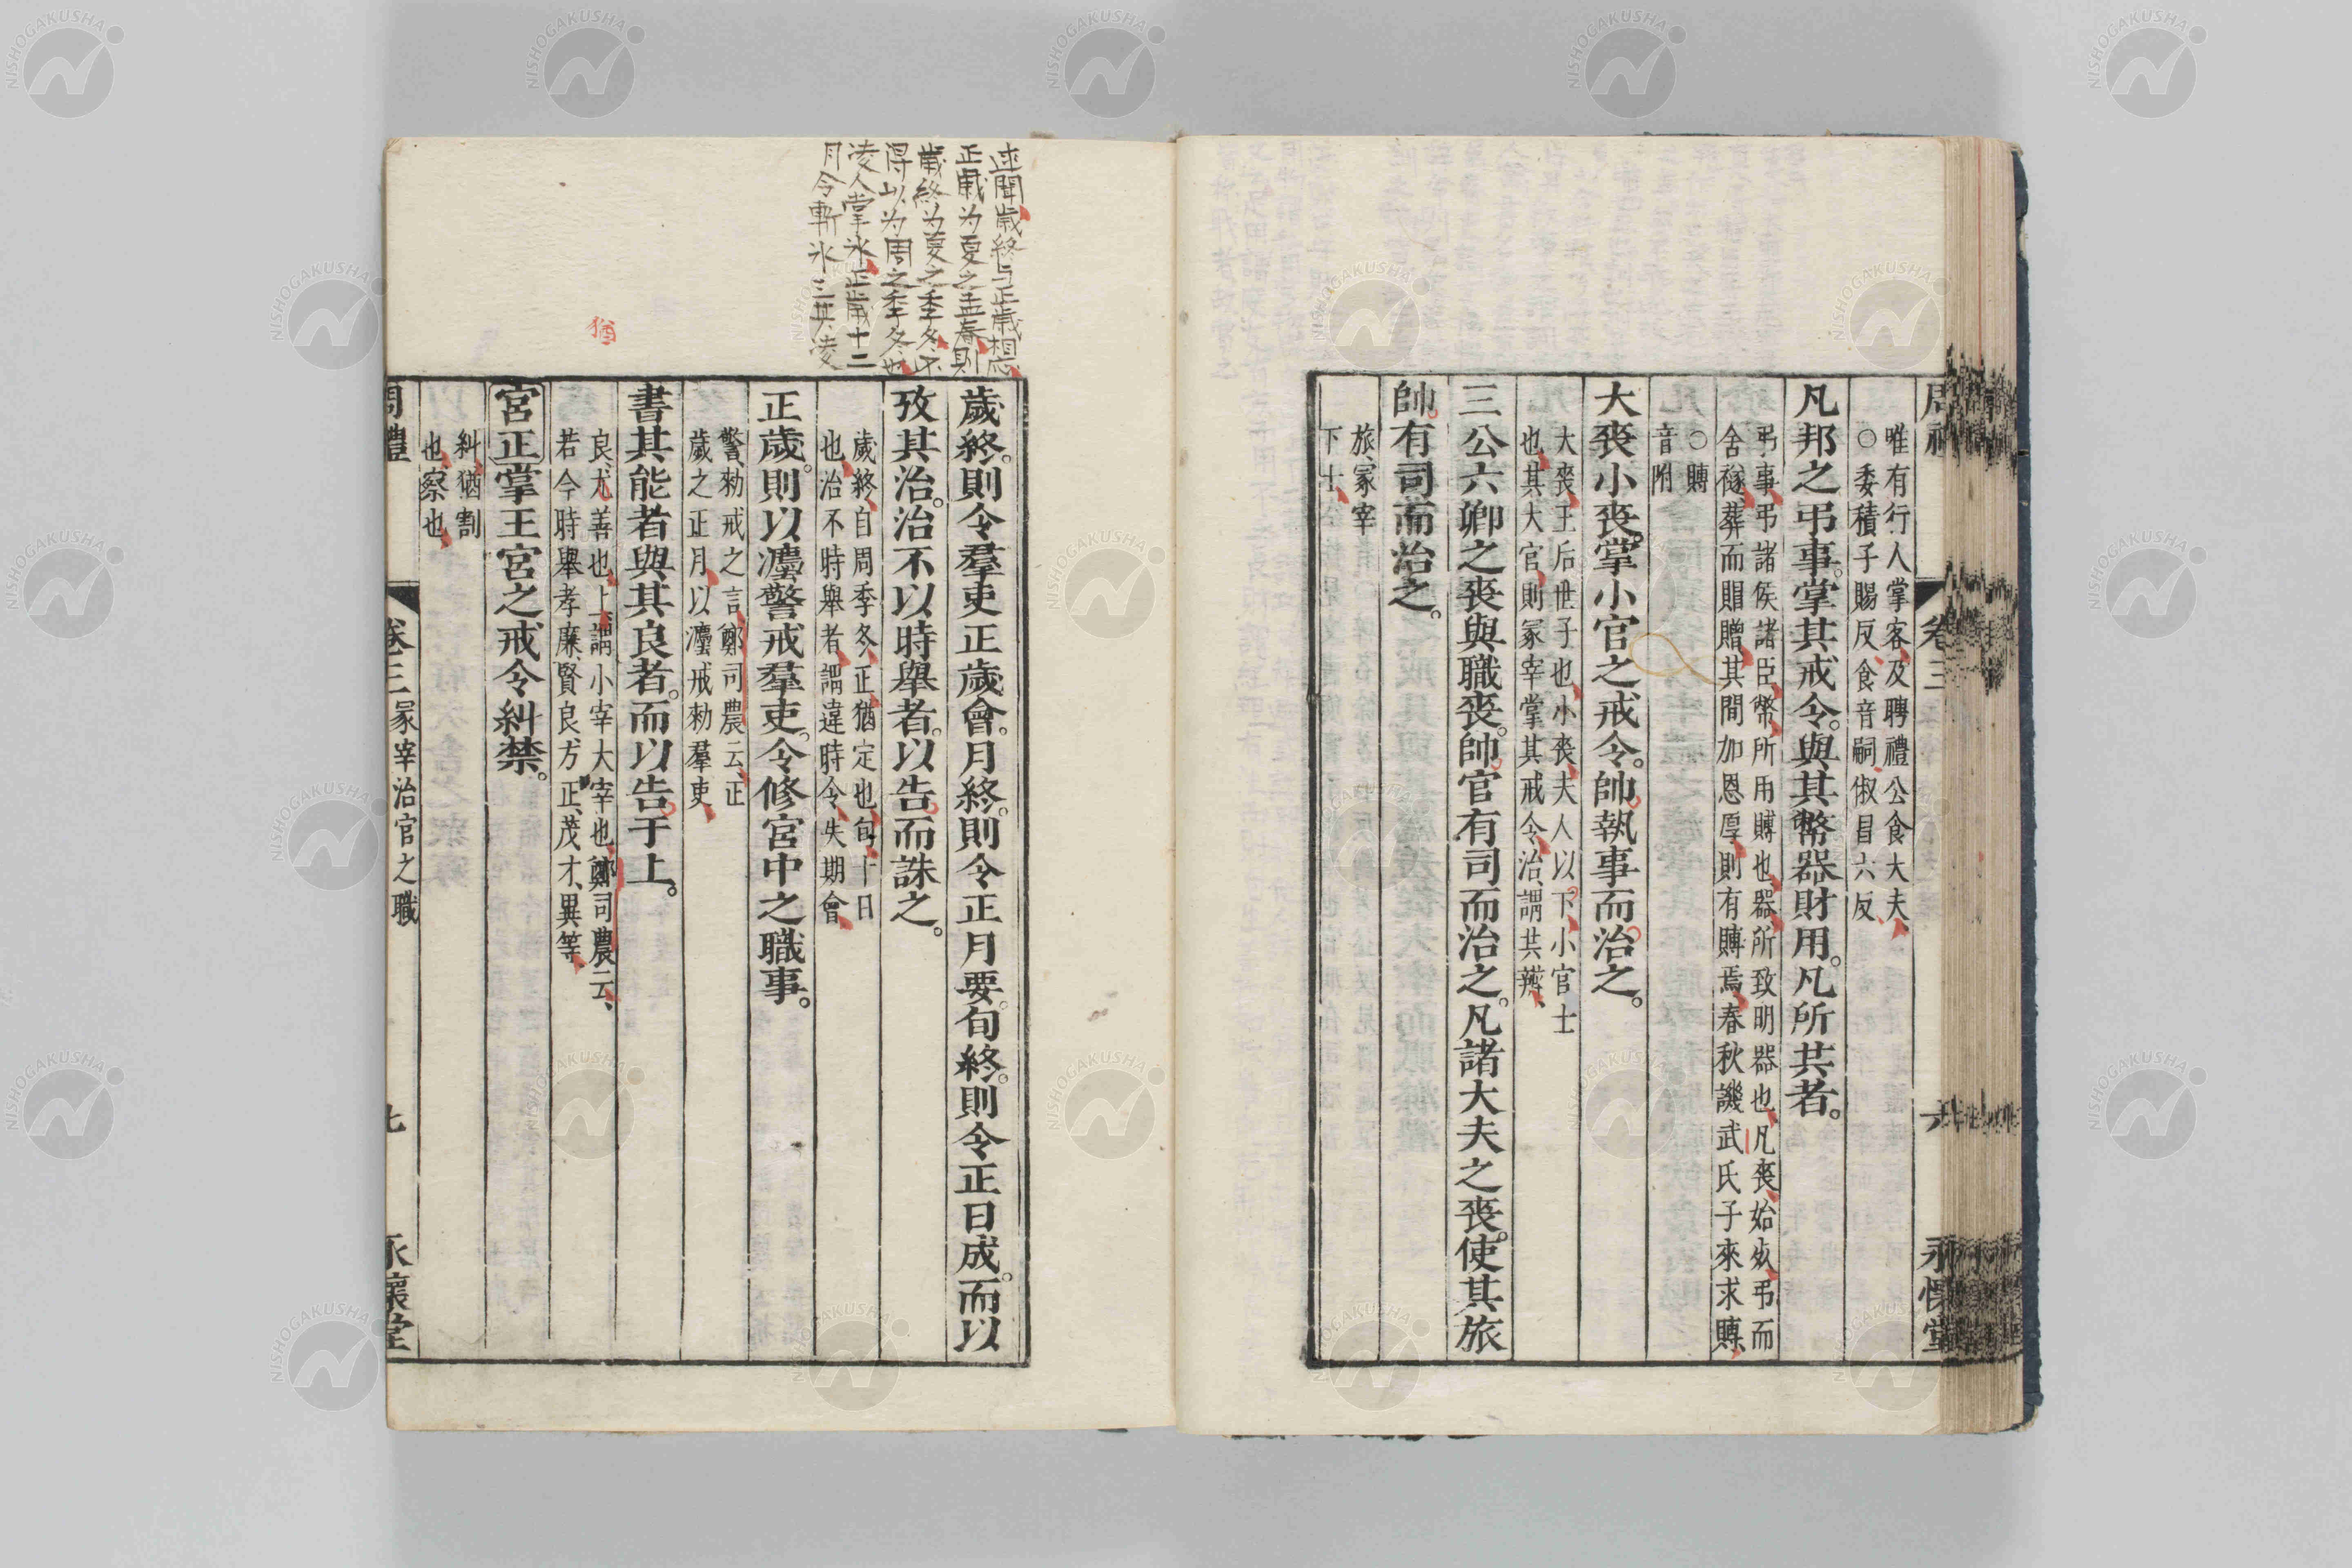 唯有行人掌客、及聘禮公食大夫、
○委積子賜反、食音嗣、俶昌六反
凡邦之弔事。掌其戒令。與其幣器財用。凡所共者。
弔事、弔諸侯諸臣、幣、所用賻也、器、所致明器也、凡喪、始死弔而
含襚、葬而賵贈、其間加恩厚、則有賻焉、春秋譏武氏子來求賻、
○賻
音附
大喪小喪。掌小官之戒令。帥執事而治之。
大喪、王后世子也、小喪、夫人以下、小官士
也、其大官、則冢宰掌其戒令、治、謂共辨、
三公六卿之喪。與職喪。帥官有司而治之。凡諸大夫之喪。使其旅
帥有司而治之。
旅、冢宰
下士、
迷聞、歳終与正歳相応、
正歳为夏之孟春、則
歳終为夏之季冬、不
得以为周之季冬也、
凌人掌氷、正歳十二
月令斬氷三其凌
猶
歲終。則令羣吏正歲會。月終。則令正月要。旬終。則令正日成。而以
攷其治。治不以時舉者。以告而誅之。
歲終、自周季冬、正、猶定也、旬、十日
也、治不時舉者、謂違時令、失期會、
正歲。則以灋警戒羣吏。令修宮中之職事。
警、勑戒之言、鄭司農云、正
歲之正月、以灋戒勑羣吏、
書其能者與其良者。而以告于上。
良、尤善也、上、謂小宰大宰也、鄭司農云、
若今時舉孝廉、賢良、方正、茂才、異等、
宮正掌王宮之戒令糾禁。
糾、猶割
也、察也、
周禮 卷三 冢宰治官之職 七 永懷堂
NISHOGAKUSHA